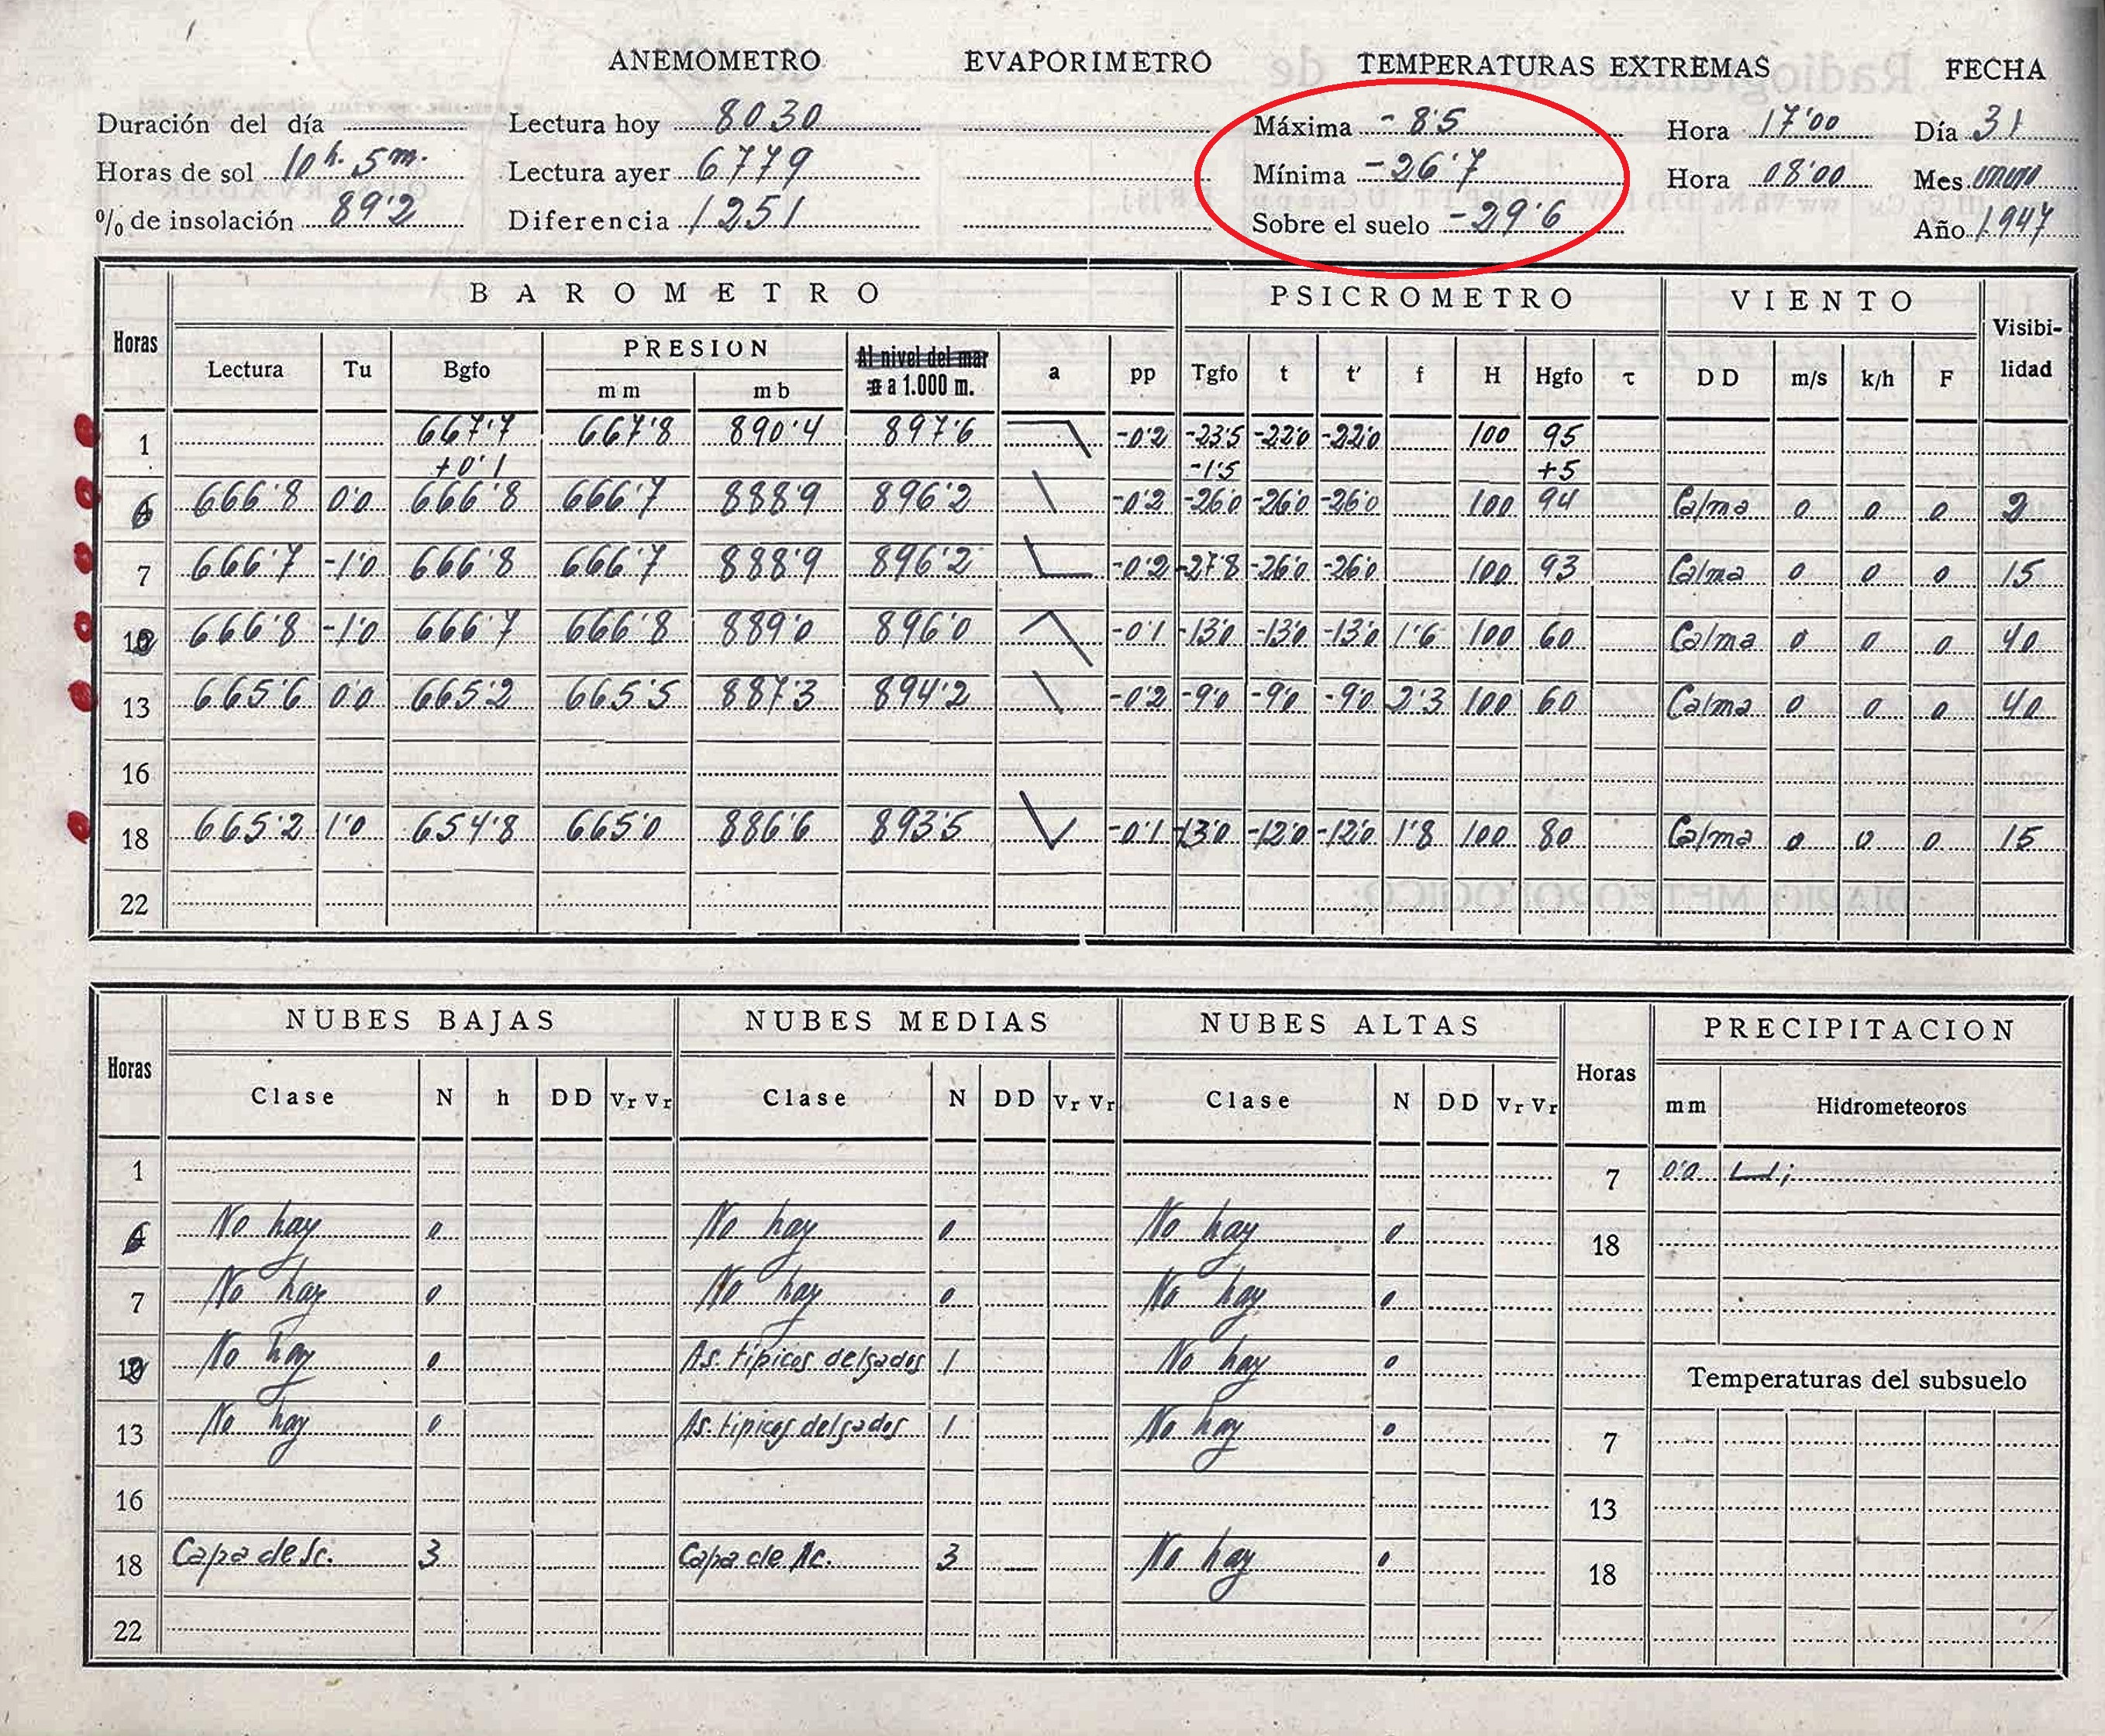 ANEMOMETRO EVAPORIMETRO TEMPERATURAS EXTREMAS FECHA
Duración del día Lectura hoy 8030 Máxima -8'5 Hora 17'00 Día 31
Horas de sol 10h. 5m. Lectura ayer 6779 Mínima -26'7 Hora 08'00 Mes enero
% de insolación 89'2 Diferencia 1251 Sobre el suelo -29'6 Año 1947
BAROMETRO PSICROMETRO VIENTO Visibi-
Horas Lectura Tu Bgfo PRESION Al nivel del mar a pp Tgfo t t' f H Hgfo τ DD m/s k/h F lidad
mm mb a 1.000 m.
1 667'7 667'8 890'4 897'6 -0'2 -23'5 -22'0 -22'0 100 95
+0'1 -1'5 +5
6 666'8 0'0 666'8 666'7 888'9 896'2 -0'2 -26'0 -26'0 -26'0 100 94 Calma 0 0 0 2
7 666'7 -1'0 666'8 666'7 888'9 896'2 -0'2 -27'8 -26'0 -26'0 100 93 Calma 0 0 0 15
666'8 -1'0 666'7 666'8 889'0 896'0 -0'1 -13'0 -13'0 -13'0 1'6 100 60 Calma 0 0 0 40
13 665'6 0'0 665'2 665'5 887'3 894'2 -0'2 -9'0 -9'0 -9'0 2'3 100 60 Calma 0 0 0 40
16
18 665'2 1'0 654'8 665'0 886'6 893'5 -0'1 -13'0 -12'0 -12'0 1'8 100 80 Calma 0 0 0 15
22
NUBES BAJAS NUBES MEDIAS NUBES ALTAS Horas PRECIPITACION
Horas Clase N h DD Vr Vr Clase N DD Vr Vr Clase N DD Vr Vr mm Hidrometeoros
1 7 0'0
6 No hay 0 No hay 0 No hay 0 18
7 No hay 0 No hay 0 No hay 0
No hay 0 As. típicos delgados 1 No hay 0 Temperaturas del subsuelo
13 No hay 0 As. típicos delgados 1 No hay 0 7
16 13
18 Capa de Sc. 3 Capa de Ac. 3 No hay 0 18
22